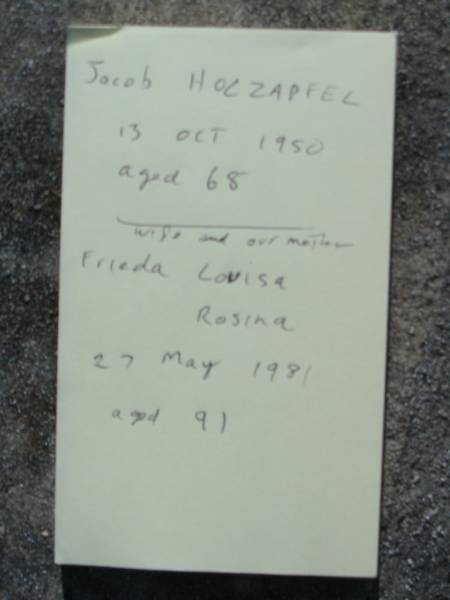 Jacob HOLZAPFEL
13 OCT 1950
aged 68
wife and our mother
Frieda Louisa
Rosina
27 May 1981
aged 91